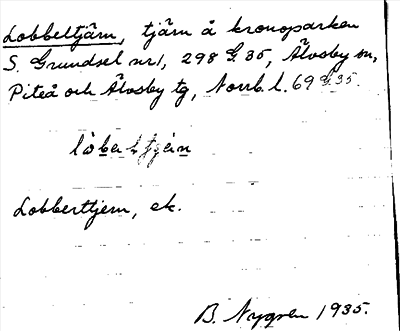 Lobbeltjärn, tjärn å kronoparken
S. Grundsel nr 1, 298 G. 35, Älvsby sn,
Piteå och Älvsby tg, Norrb. l. 69 G 35.
Lobberttjern, ek.
B. Nygren 1935.